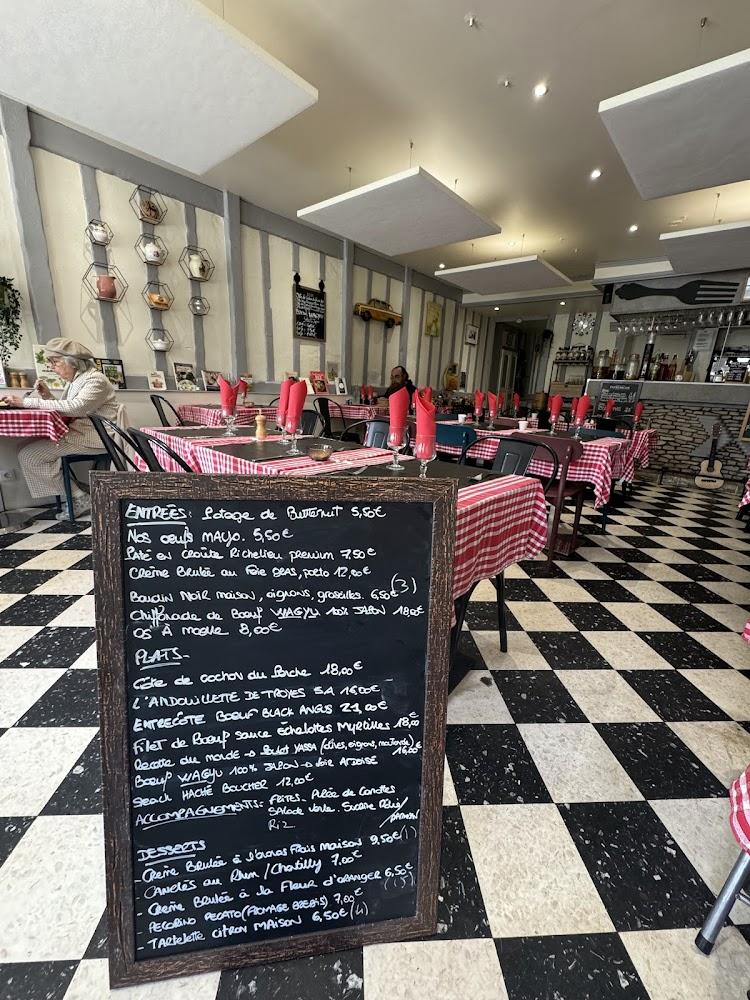 ENTRÉES: Potage de Butternut 5,50€
Nos oeufs MAYO. 5,50€
Pâté en croûte Richelieu premium 7,50€
Crème Brulée au Foie GRAS, porto 12,00€
Boudin NOIR maison, oignons, groseilles. 6,50€ (3)
Chiffonade de Boeuf WAGYU 100% JAPON 18,00€
OS À MOELLE 8,00€
PLATS
Côte de cochon du Perche 18,00€
L'ANDOUILLETTE DE TROYES 5A 16,00€
ENTRECÔTE BOEUF BLACK ANGUS 21,00€
Filet de Boeuf sauce échalotes Myrtilles 18,00
Recette du monde → Poulet YASSA (olives, oignons, moutarde) 16,00€
Boeuf WAGYU 100% JAPON → voir ARDOISE
Steack HACHÉ BOUCHER 12,00€
ACCOMPAGNEMENTS: FRITES. Purée de Carottes
Salade verte.
Riz
DESSERTS
- Crème Brulée à l'ananas Frais maison 9,50€ (1)
- Canelés au Rhum / Chantilly 7,00€
- Crème Brulée à la Fleur d'ORANGER 6,50€
- PECORINO PEPATO (FROMAGE BREBIS) 7,00€
- TARTELETTE CITRON MAISON 6,50€ (4)